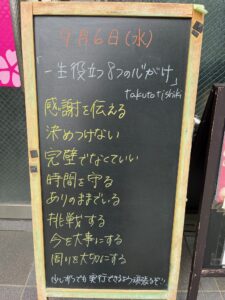 9月6日(水)
「一生役立つ8つの心がけ」
takuto tishiki
感謝を伝える
決めつけない
完璧でなくていい
時間を守る
ありのままでいる
挑戦する
今を大事にする
周りを大切にする
少しずつでも実行できるよう頑張るぞ!!